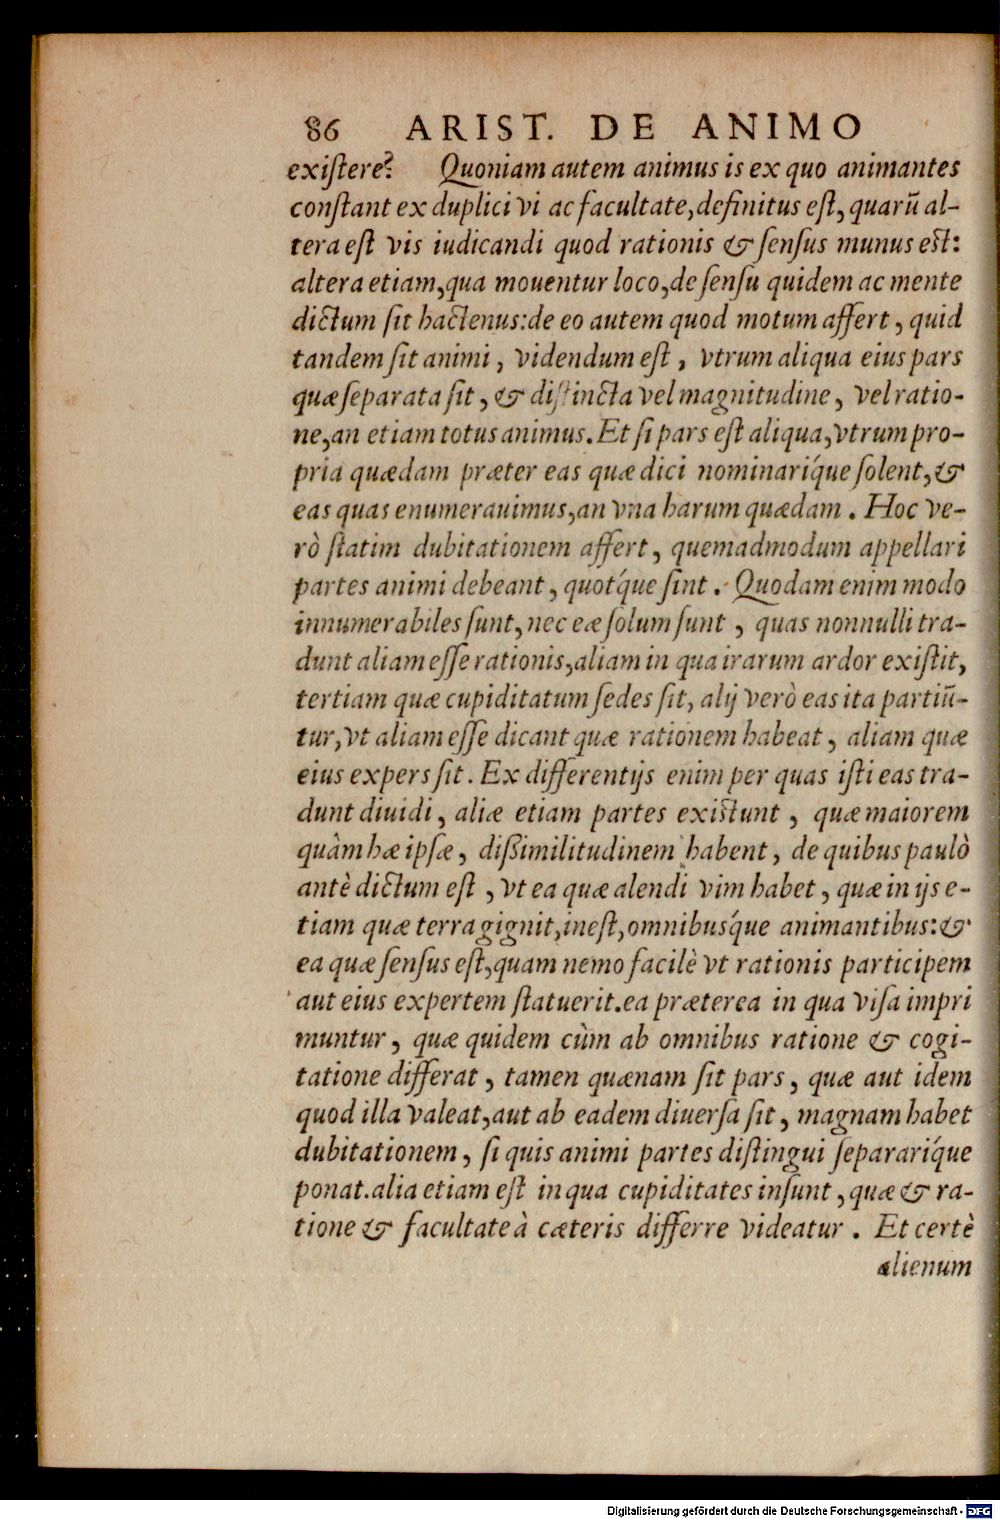 86 ARIST. DE ANIMO
exiſtere? Quoniam autem animus is ex quo animantes
conſtant ex duplici vi ac facultate, definitus eſt, quarū al-
tera eſt vis iudicandi quod rationis & ſenſus munus eſt:
altera etiam, qua mouentur loco, de ſenſu quidem ac mente
dictum ſit hactenus: de eo autem quod motum affert, quid
tandem ſit animi, videndum eſt, vtrum aliqua eius pars
quæ ſeparata ſit, & diſtincta vel magnitudine, vel ratio-
ne, an etiam totus animus. Et ſi pars eſt aliqua, vtrum pro-
pria quædam præter eas quæ dici nominariq́ue ſolent, &
eas quas enumerauimus, an vna harum quædam. Hoc ve-
rò ſtatim dubitationem affert, quemadmodum appellari
partes animi debeant, quotq́ue ſint. Quodam enim modo
innumerabiles ſunt, nec eæ ſolum ſunt, quas nonnulli tra-
dunt aliam eſſe rationis, aliam in qua irarum ardor exiſtit,
tertiam quæ cupiditatum ſedes ſit, alij verò eas ita partiū-
tur, vt aliam eſſe dicant quæ rationem habeat, aliam quæ
eius expers ſit. Ex differentijs enim per quas iſti eas tra-
dunt diuidi, aliæ etiam partes exiſtunt, quæ maiorem
quàm hæ ipſæ, dißimilitudinem habent, de quibus paulò
antè dictum eſt, vt ea quæ alendi vim habet, quæ in ijs e-
tiam quæ terra gignit, ineſt, omnibusq́ue animantibus: &
ea quæ ſenſus eſt, quam nemo facilè vt rationis participem
aut eius expertem ſtatuerit. ea præterea in qua viſa impri
muntur, quæ quidem cùm ab omnibus ratione & cogi-
tatione differat, tamen quænam ſit pars, quæ aut idem
quod illa valeat, aut ab eadem diuerſa ſit, magnam habet
dubitationem, ſi quis animi partes diſtingui ſepararíq́ue
ponat. alia etiam eſt in qua cupiditates inſunt, quæ & ra-
tione & facultate à cæteris differre videatur. Et certè
alienum
Digitalisierung gefördert durch die Deutsche Forschungsgemeinschaft - DFG